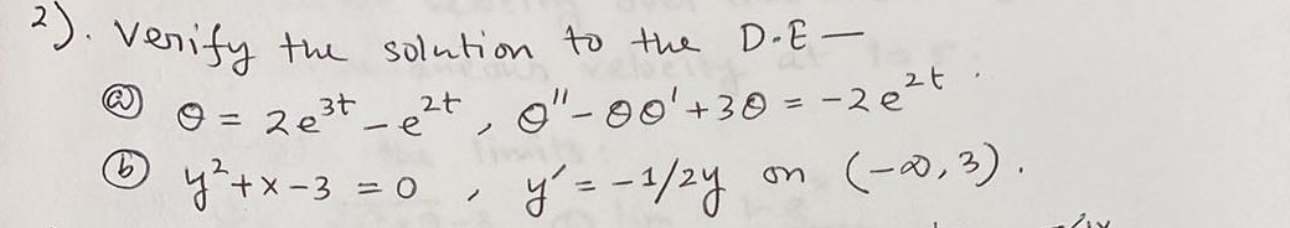 2). Verify the solution to the D.E —
(a) θ = 2e^{3t} - e^{2t}, θ'' - θθ' + 3θ = -2e^{2t}.
(b) y² + x - 3 = 0, y' = -1/2y on (-∞, 3).